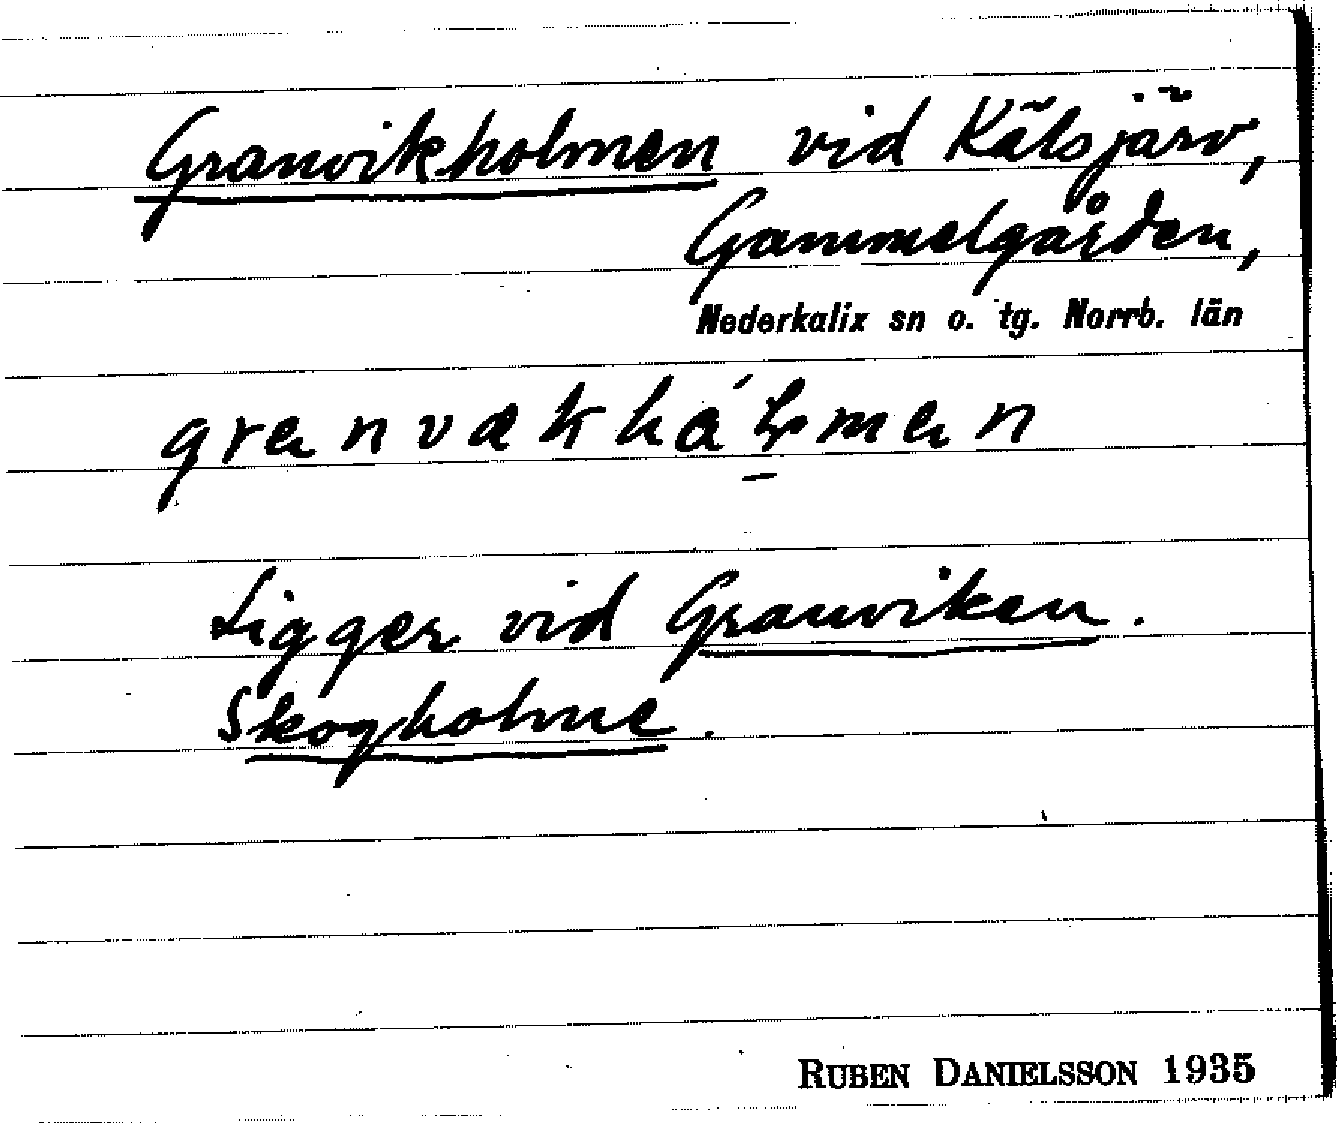 Granvikholmen vid Kälsjärv,
Gammelgården,
Nederkalix sn o. tg. Norrb. län
Ligger vid Granviken.
Skogholme.
RUBEN DANIELSSON 1935